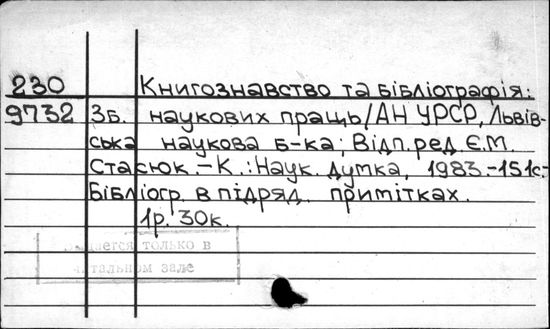 230 Книгознавство та бібліографія:
9732 Зб. наукових праць/АН УРСР, Львів-
ська наукова б-ка; Відп.ред Є.М.
Стасюк.-К.:Наук. думка, 1983.-151с.-
Бібліогр. в підряд. примітках.
1р. 30к.
только в
читальном зале